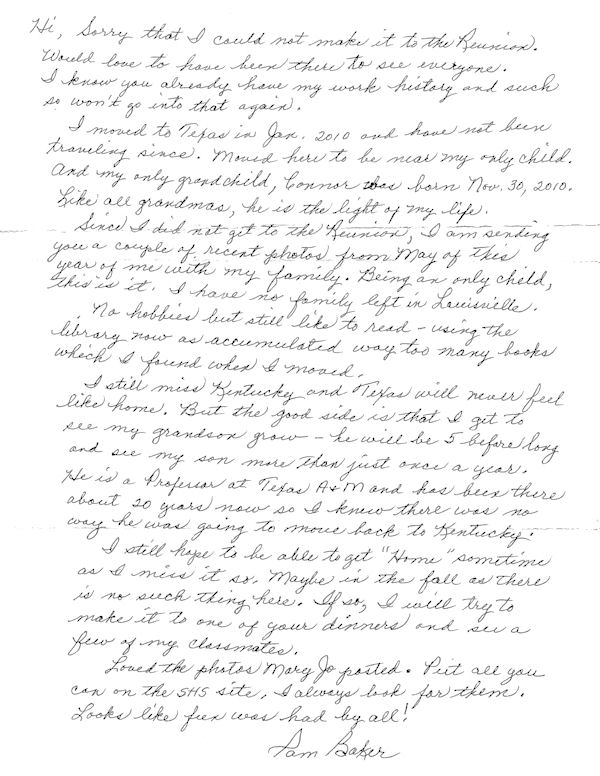 Hi, Sorry that I could not make it to the Reunion.
Would love to have been there to see everyone.
I know you already have my work history and such
so won't go into that again.
I moved to Texas in Jan. 2010 and have not been
traveling since. Moved here to be near my only child.
And my only grandchild, Connor was born Nov. 30, 2010.
Like all grandmas, he is the light of my life.
Since I did not get to the Reunion, I am sending
you a couple of recent photos from May of this
year of me with my family. Being an only child,
this is it. I have no family left in Louisville.
No hobbies but still like to read - using the
library now as accumulated way too many books
which I found when I moved.
I still miss Kentucky and Texas will never feel
like home. But the good side is that I get to
see my grandson grow - he will be 5 before long
and see my son more than just once a year.
He is a Professor at Texas A+M and has been there
about 20 years now so I knew there was no
way he was going to move back to Kentucky.
I still hope to be able to get "Home" sometime
as I miss it so. Maybe in the fall as there
is no such thing here. If so, I will try to
make it to one of your dinners and see a
few of my classmates.
Loved the photos Mary Jo posted. Put all you
can on the SHS site, I always look for them.
Looks like fun was had by all!
Pam Baker